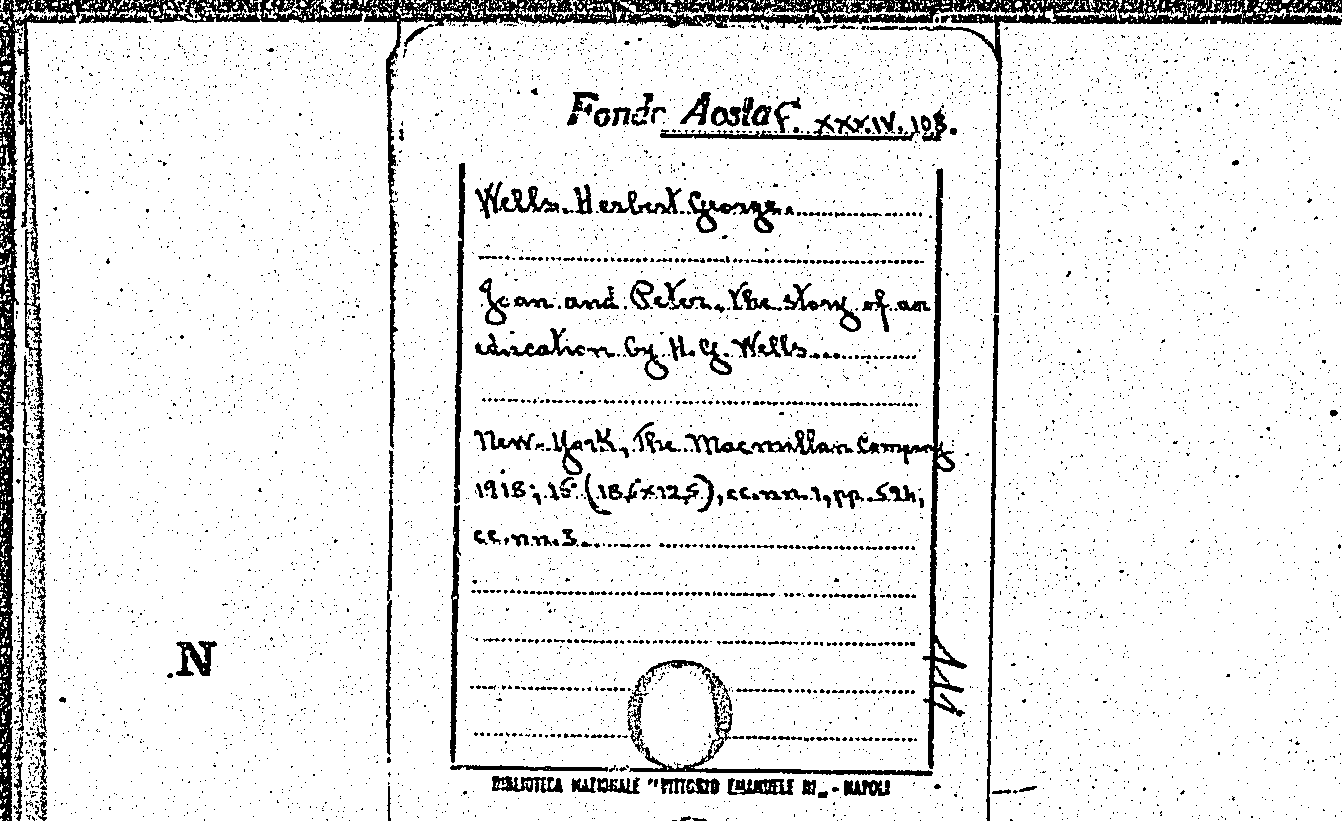 Fondo Aosta F. XXXIV. 108.
Wells. Herbert George.
Joan and Peter. The story of an
education by H. G. Wells...
New-York, The Macmillan Company
1918; 15° (18,5x12,5), cc.nn.1, pp. 594,
cc.nn.3.
N
BIBLIOTECA NAZIONALE "VITTORIO EMANUELE III„ - NAPOLI